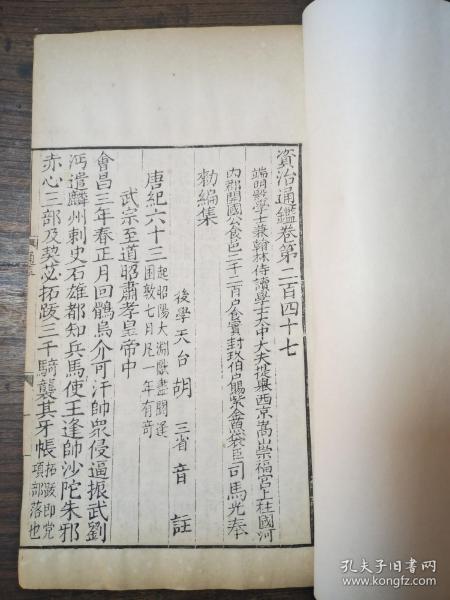 資治通鑑卷第二百四十七
端明殿學士兼翰林侍讀學士大中大夫提舉西京嵩山崇福宮上柱國河
內郡開國公食邑二千二百戶食實封玖伯戶賜紫金魚袋臣司馬光奉
勑編集
後學天台胡三省音註
唐紀六十三起昭陽大淵獻盡閼逢
困敦七月凡一年有奇
武宗至道昭肅孝皇帝中
會昌三年春正月回鶻烏介可汗帥衆侵逼振武劉
沔遣麟州刺史石雄都知兵馬使王逢帥沙陀朱邪
赤心三部及契苾拓跋三千騎襲其牙帳拓跋即党
項部落也
孔夫子旧书网
https://book.kongfz.com/